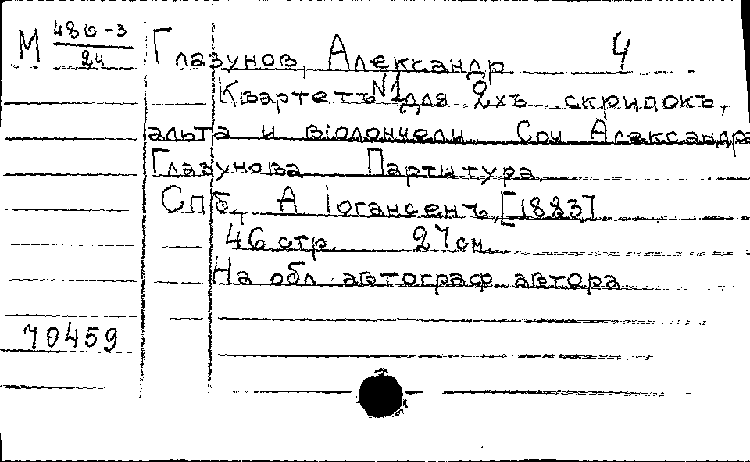 М 480-3/24 Глазунов, Александр 4
Квартетъ N1 для 2хъ скрипокъ,
альта и віолончели. Соч Александра
Глазунова Партитура
Спб, А Іогансенъ, [1883]
46 стр 27 см
На обл автограф автора
70459